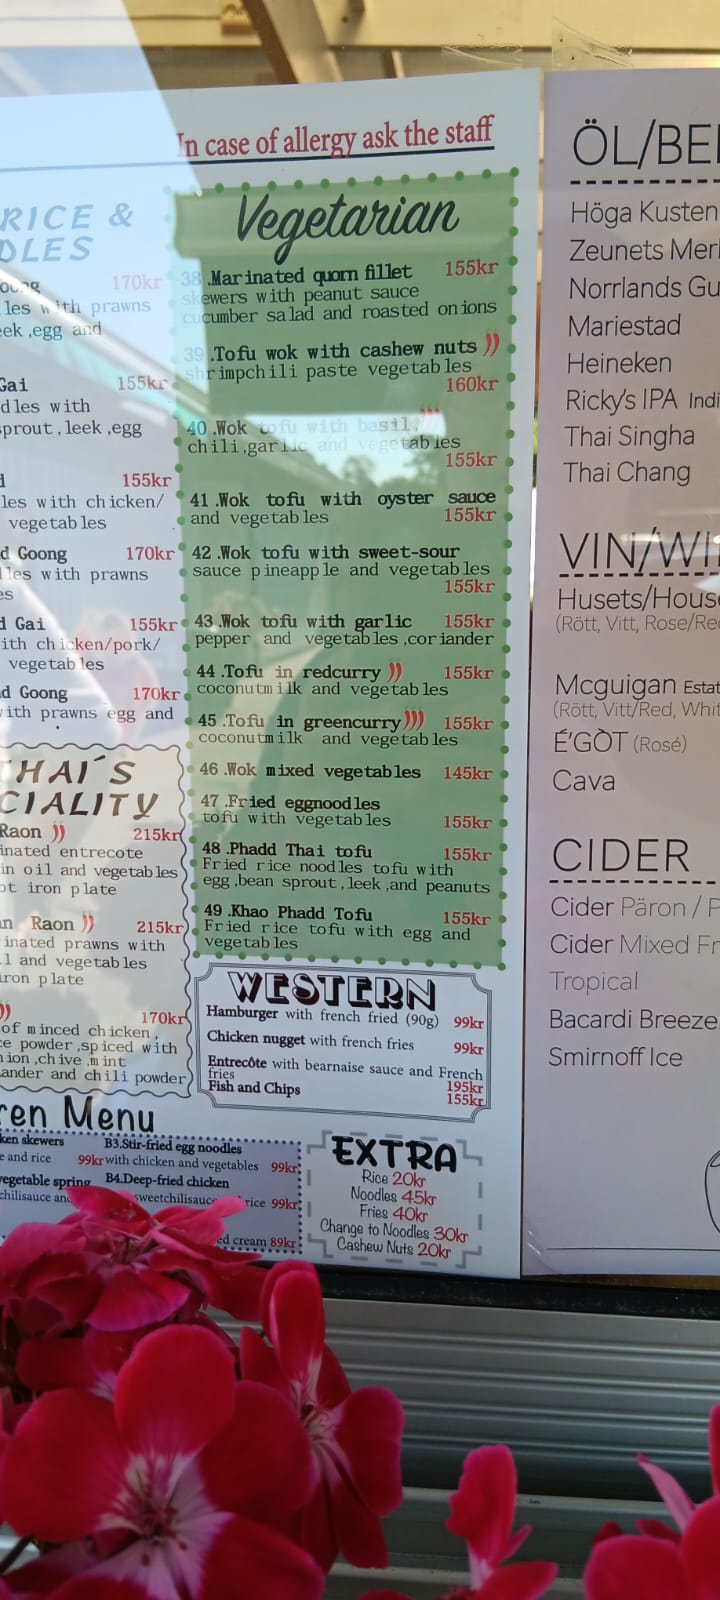 In case of allergy ask the staff
RICE &
DLES
170kr
les with prawns
eek ,egg and
Gai 155kr
dles with
sprout,leek,egg
155kr
les with chicken/
vegetables
d Goong 170kr
les with prawns
es
d Gai 155kr
ith chicken/pork/
vegetables
ad Goong 170kr
with prawns egg and
HAI´S
CIALITY
Raon 215kr
inated entrecote
in oil and vegetables
ot iron plate
n Raon 215kr
inated prawns with
l and vegetables
iron plate
170kr
of minced chicken,
ce powder,spiced with
nion,chive,mint
ander and chili powder
Vegetarian
38 .Marinated quorn fillet 155kr
skewers with peanut sauce
cucumber salad and roasted onions
39 .Tofu wok with cashew nuts
shrimpchili paste vegetables
160kr
40 .Wok tofu with basil,
chili,garlic and vegetables
155kr
41 .Wok tofu with oyster sauce
and vegetables 155kr
42 .Wok tofu with sweet-sour
sauce pineapple and vegetables
155kr
43 .Wok tofu with garlic 155kr
pepper and vegetables,coriander
44 .Tofu in redcurry 155kr
coconutmilk and vegetables
45 .Tofu in greencurry 155kr
coconutmilk and vegetables
46 .Wok mixed vegetables 145kr
47 .Fried eggnoodles
tofu with vegetables 155kr
48 .Phadd Thai tofu 155kr
Fried rice noodles tofu with
egg,bean sprout,leek,and peanuts
49 .Khao Phadd Tofu 155kr
Fried rice tofu with egg and
vegetables
WESTERN
Hamburger with french fried (90g) 99kr
Chicken nugget with french fries 99kr
Entrecôte with bearnaise sauce and French
fries 195kr
Fish and Chips 155kr
ren Menu
ken skewers
e and rice 99kr
vegetable spring
chilisauce an
B3.Stir-fried egg noodles
with chicken and vegetables 99kr
B4.Deep-fried chicken
sweetchilisauce rice 99kr
ed cream 89kr
EXTRA
Rice 20kr
Noodles 45kr
Fries 40kr
Change to Noodles 30kr
Cashew Nuts 20kr
ÖL/BE
Höga Kusten
Zeunets Mer
Norrlands Gu
Mariestad
Heineken
Ricky's IPA Indi
Thai Singha
Thai Chang
VIN/WI
Husets/House
(Rött, Vitt, Rose/Re
Mcguigan Estat
(Rött, Vitt/Red, Whit
É'GÒT (Rosé)
Cava
CIDER
Cider Päron / P
Cider Mixed Fr
Tropical
Bacardi Breeze
Smirnoff Ice